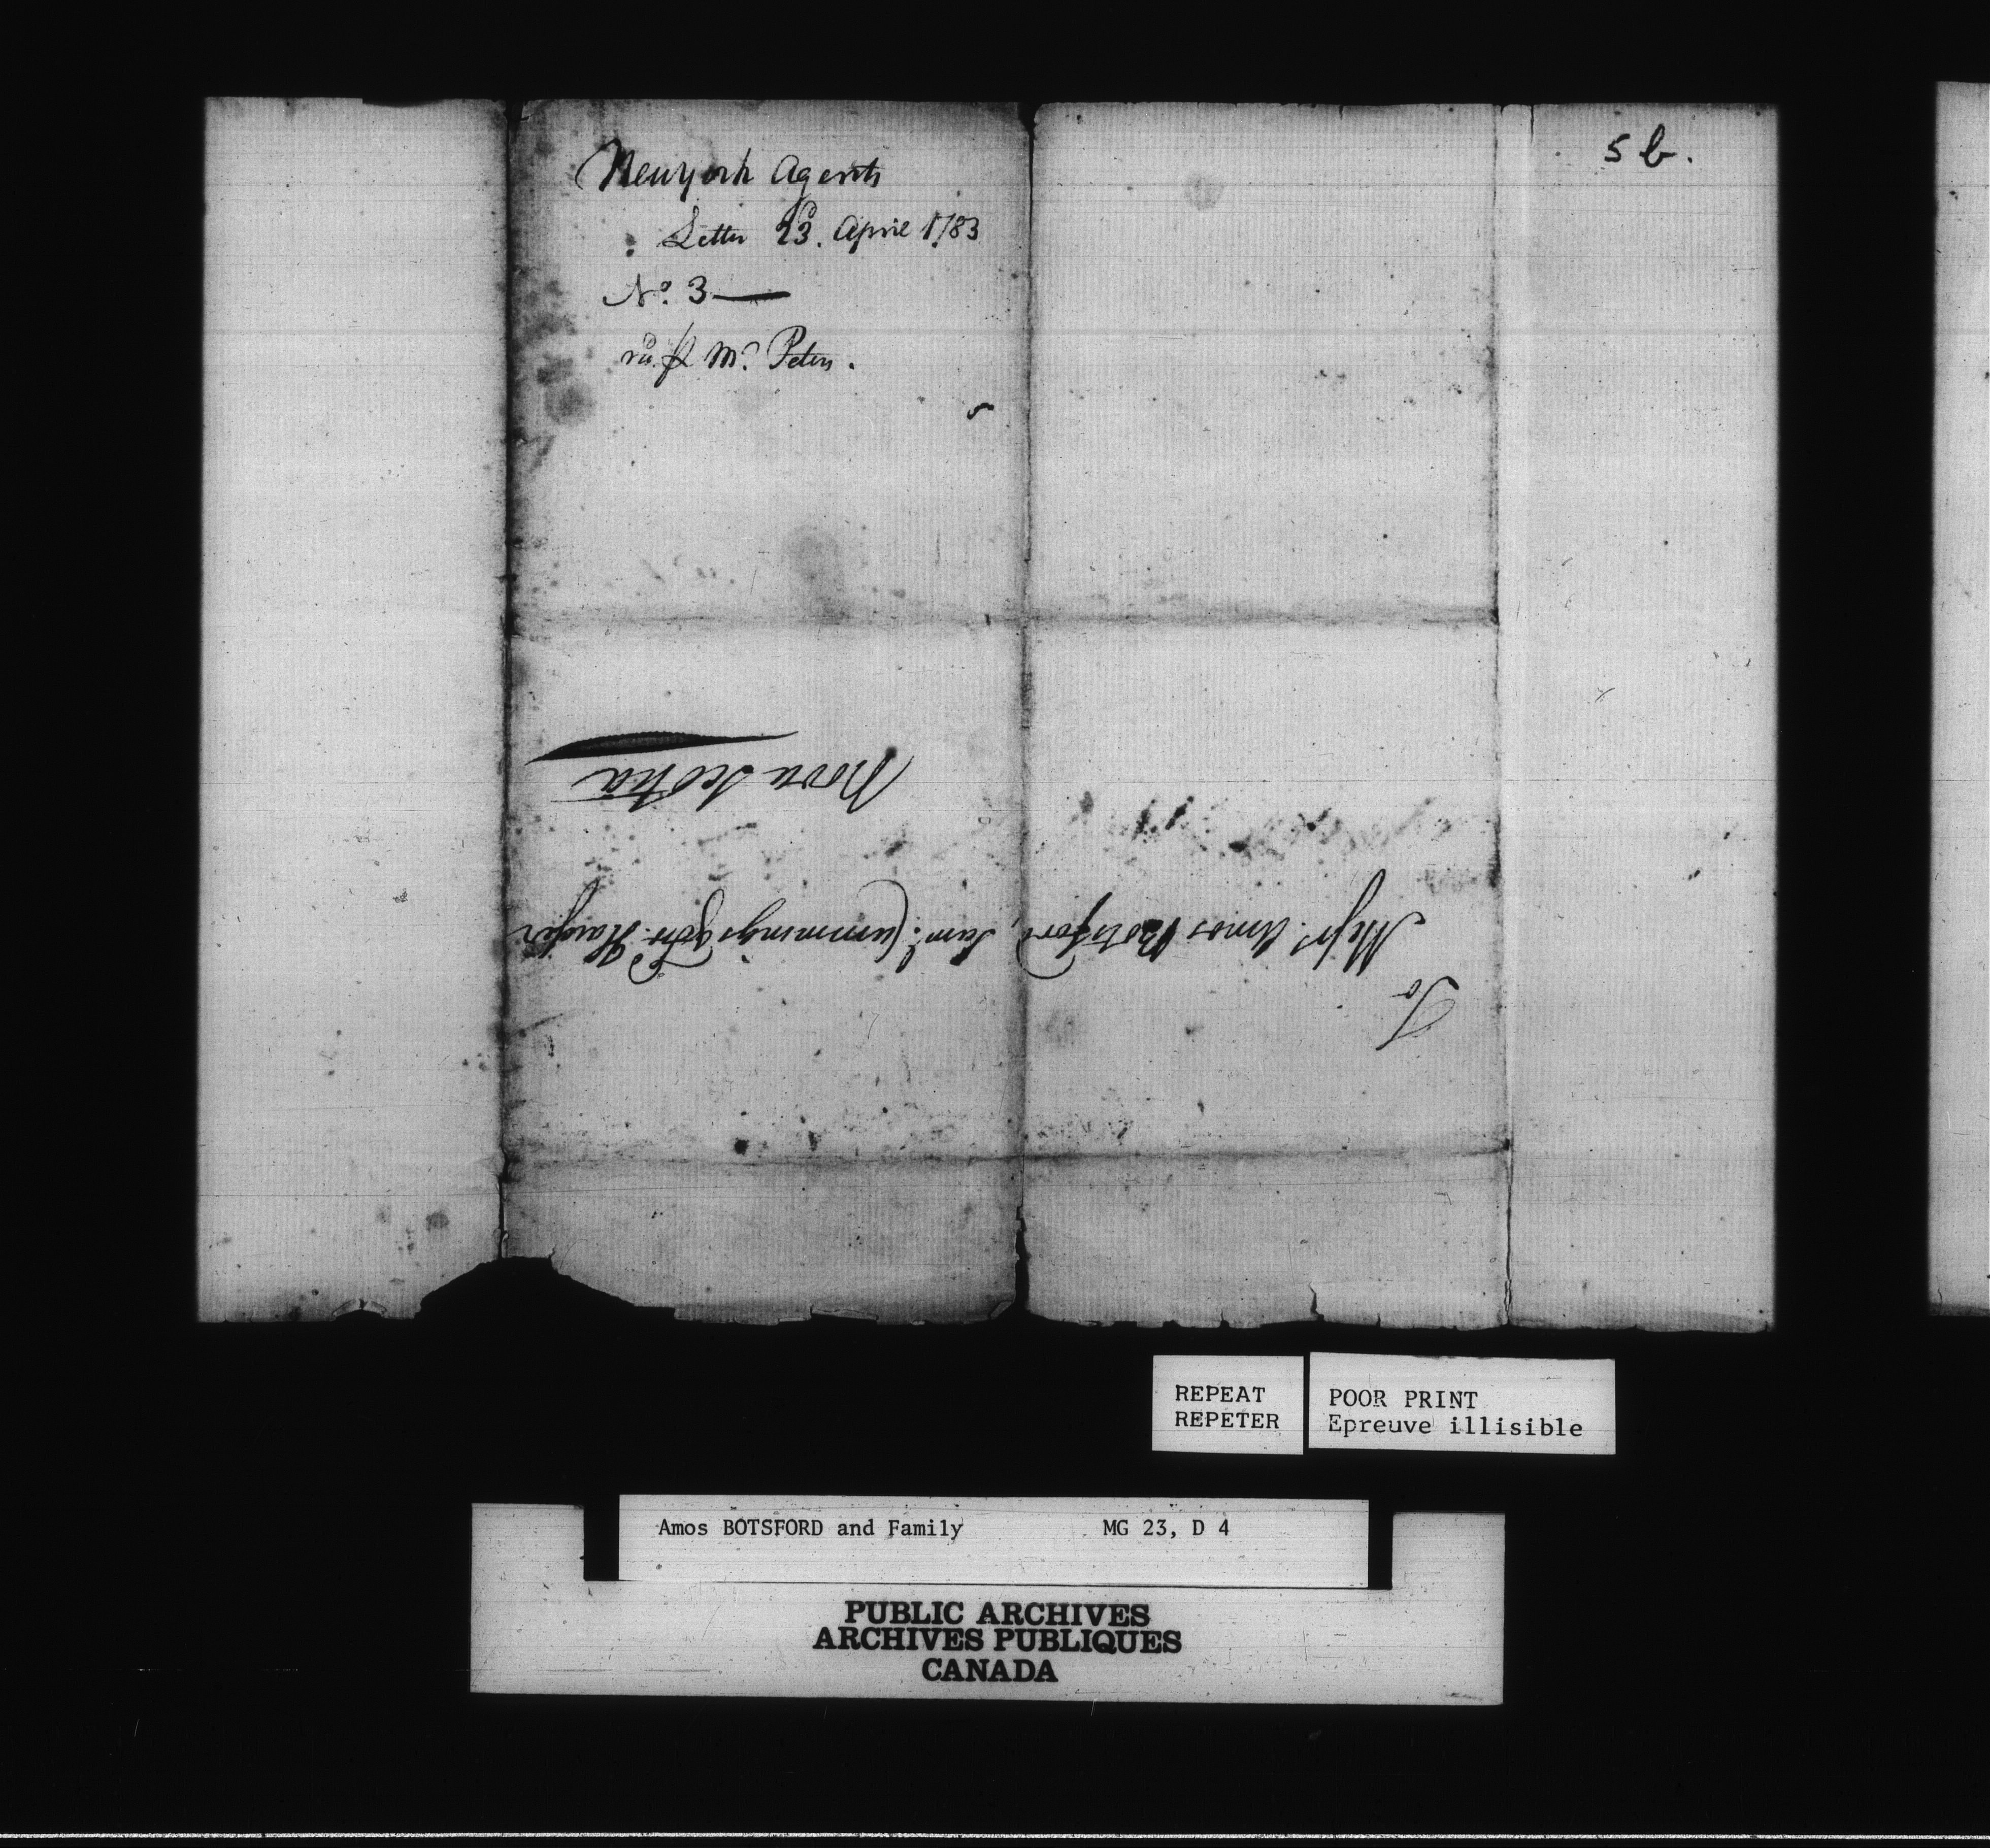 5 b.
New york Agents
Letter 23. April 1783
No. 3 —
Mr. Peters.
To
Messrs. Amos Botsford, Saml. Cummings & Fdr. Hauser
Nova Scotia
REPEAT
REPETER
POOR PRINT
Epreuve illisible
Amos BOTSFORD and Family MG 23, D 4
PUBLIC ARCHIVES
ARCHIVES PUBLIQUES
CANADA